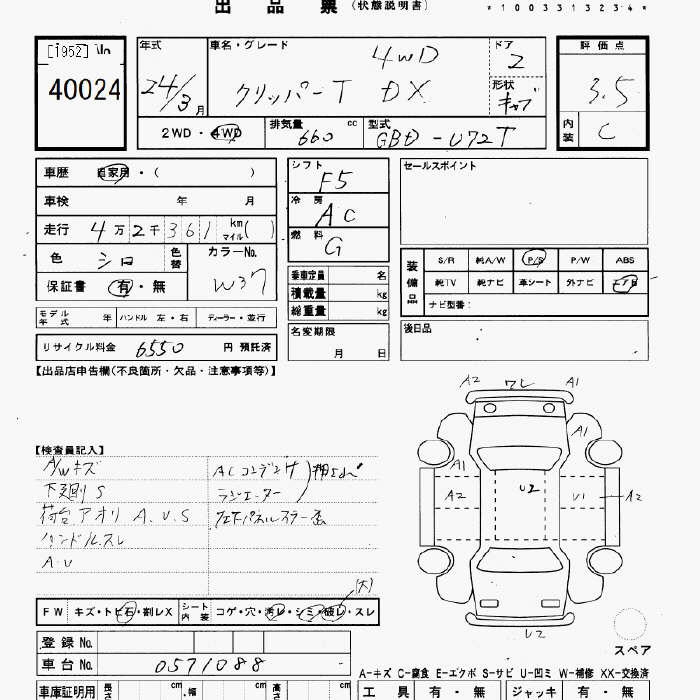 出 品 票 (状態説明書)
*1003313234*
[1952]
40024
年式
24/3月
車名・グレード
4WD
クリッパーT DX
ドア
2
形状
キャブ
評価点
3.5
内装
C
2WD・4WD
排気量
660 cc
型式
GBD-U72T
車歴 自家用・( )
車検 年 月
走行 4万2千361 km マイル( )
色 シロ 色替
カラーNo.
W37
保証書 有・無
シフト
F5
冷房
AC
燃料
G
セールスポイント
装備品
S/R 純A/W P/S P/W ABS
純TV 純ナビ 革シート 外ナビ エアB
ナビ型番:
乗車定員 名
積載量 kg
総重量 kg
モデル年式 年 ハンドル 左・右 ディーラー・並行
名変期限
月 日
後日品
リサイクル料金 6550 円 預託済
【出品店申告欄(不良箇所・欠品・注意事項等)】
A2 ワレ A1
A1
A1
A2 U2 U1 A2
U2
【検査員記入】
A/Wキズ
ACコンデンサ
下廻りS
ラジエーター
荷台アオリ A.U.S
ハンドルスレ
A.U
(大)
FW キズ・トビ石・割レX シート内装 コゲ・穴・汚レ・シミ・破レ・スレ
登録 No.
車台 No. 0571088
スペア
A-キズ C-腐食 E-エクボ S-サビ U-凹ミ W-補修 XX-交換済
車庫証明用 長さ cm 幅 cm 高さ cm
工具 有・無 ジャッキ 有・無